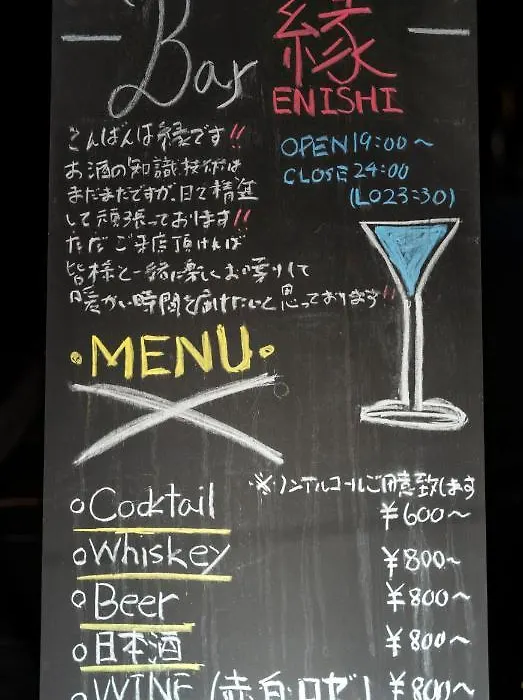 Bar 縁
ENISHI
こんばんは縁です!!
お酒の知識、技術は
まだまだですが、日々精進
して頑張っております!!
ただご来店頂ければ
皆様と一緒に楽しくお喋りして
暖かい時間を届けたいと思っております!!
OPEN 19:00〜
CLOSE 24:00
(LO23:30)
・MENU・
※ノンアルコールご用意致します
○Cocktail ¥600〜
○Whiskey ¥800〜
○Beer ¥800〜
○日本酒 ¥800〜
○WINE (赤・白・ロゼ) ¥800〜